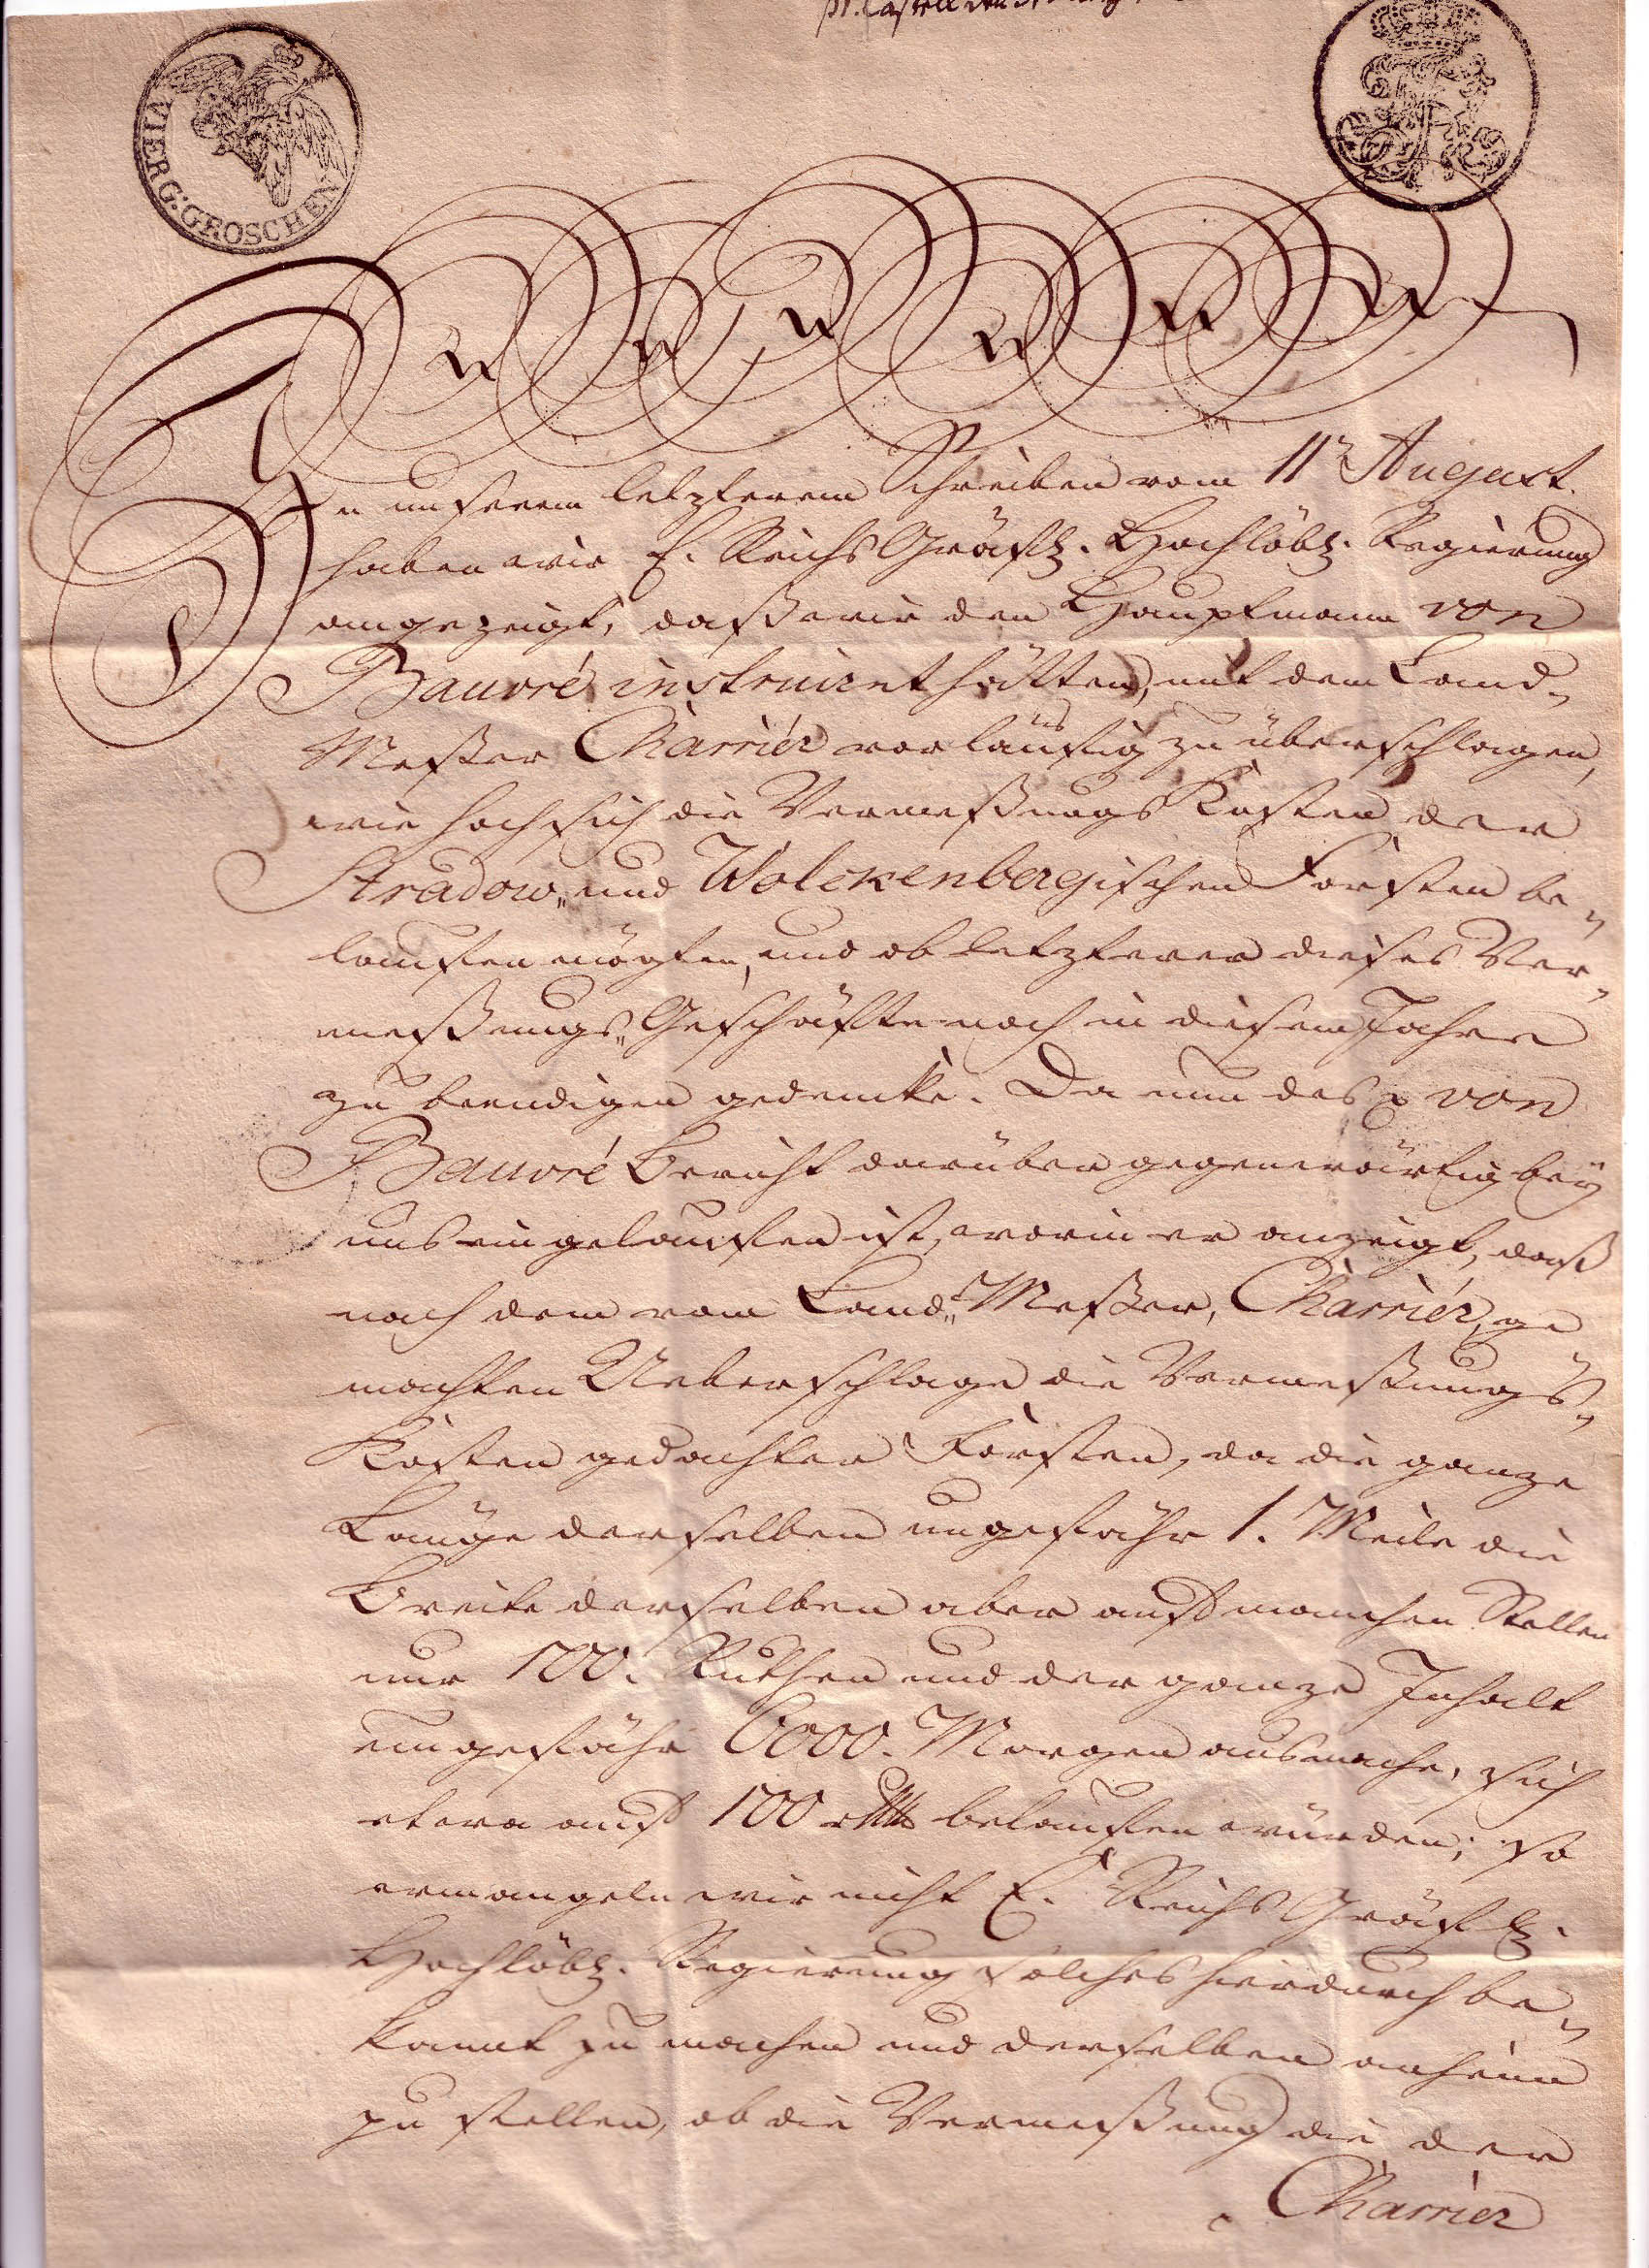 VIER G: GROSCHEN
FR
In unserem letzterem Schreiben vom 11ª August.
haben wir E. Reichs Gräfl. Hochlöbl. Regierung
angezeigt, daß wir den Hauptmann von
Bauvré instruirt hätten, mit dem Land-
Meßer Charriér vorläufig zu überschlagen,
wie hoch sich die Vermeßungs Kosten der
Stradow„ und Wolckenbergischen Forsten be„
lauffen mögten, und ob letzterer dieses Ver„
meßungs„ Geschäffte noch in diesem Jahre
zu beendigen gedencke. Da nun des p von
Bauvré Bericht darüber gegenwärtig bey
uns eingelauffen ist, worin er anzeigt, daß
nach dem vom Land„ Meßer, Charriér, ge
machten Ueberschlage die Vermeßungs„
Kosten gedachter Forsten, da die ganze
Länge derselben ungefähr 1. Meile die
Breite derselben aber auf manchen Stellen
nur 100. Ruthen und der ganze Inhalt
ungefähr 6000. Morgen ausmache, sich
etwa auf 100 rthl belauffen würden; so
ermangeln wir nicht E. Reichs Gräfl.
Hochlöbl. Regierung solches hierdurch be„
kannt zu machen und derselben anheim
zu stellen, ob die Vermeßung die der
Charrier